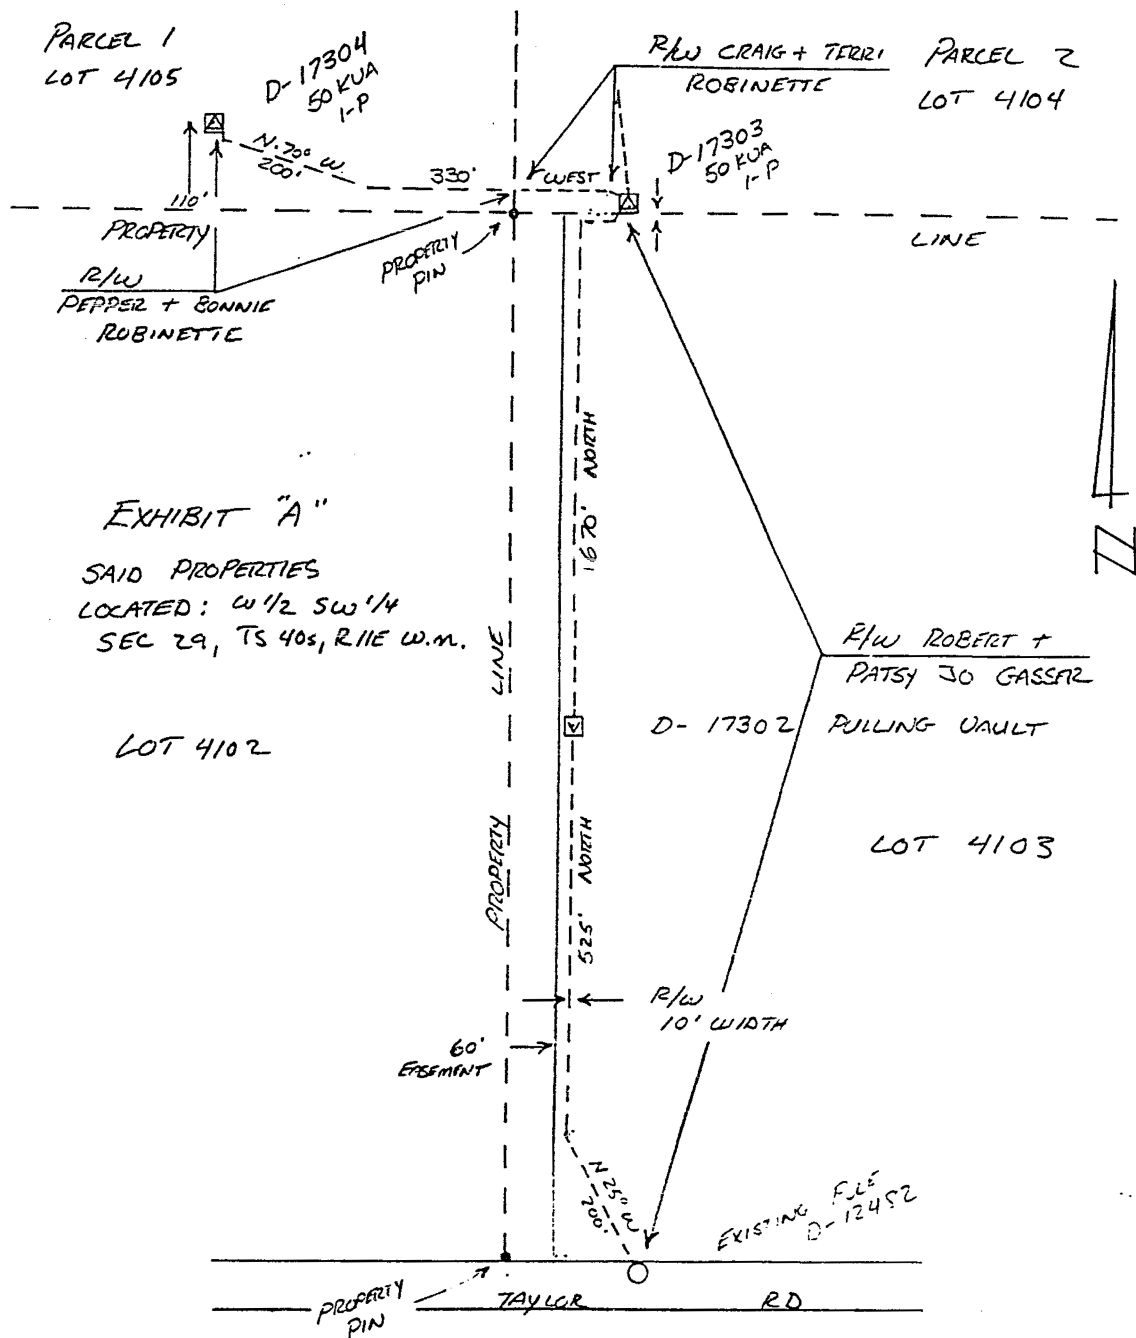 PARCEL 1
LOT 4105
D-17304
50 KVA
1-P
R/W CRAIG + TERRI
ROBINETTE
PARCEL 2
LOT 4104
N.70° W.
200'
330'
WEST
D-17303
50 KVA
1-P
110'
PROPERTY
PROPERTY
PIN
LINE
R/W
PEPPER + BONNIE
ROBINETTE
1670' NORTH
EXHIBIT "A"
SAID PROPERTIES
LOCATED: W 1/2 SW 1/4
SEC 29, TS 40S, R11E W.M.
N
R/W ROBERT +
PATSY JO GASSER
PROPERTY LINE
D-17302 PULLING VAULT
LOT 4102
LOT 4103
525' NORTH
R/W
10' WIDTH
60'
EASEMENT
N 25° W
200'
EXISTING
D-12452
PROPERTY
PIN
TAYLOR RD